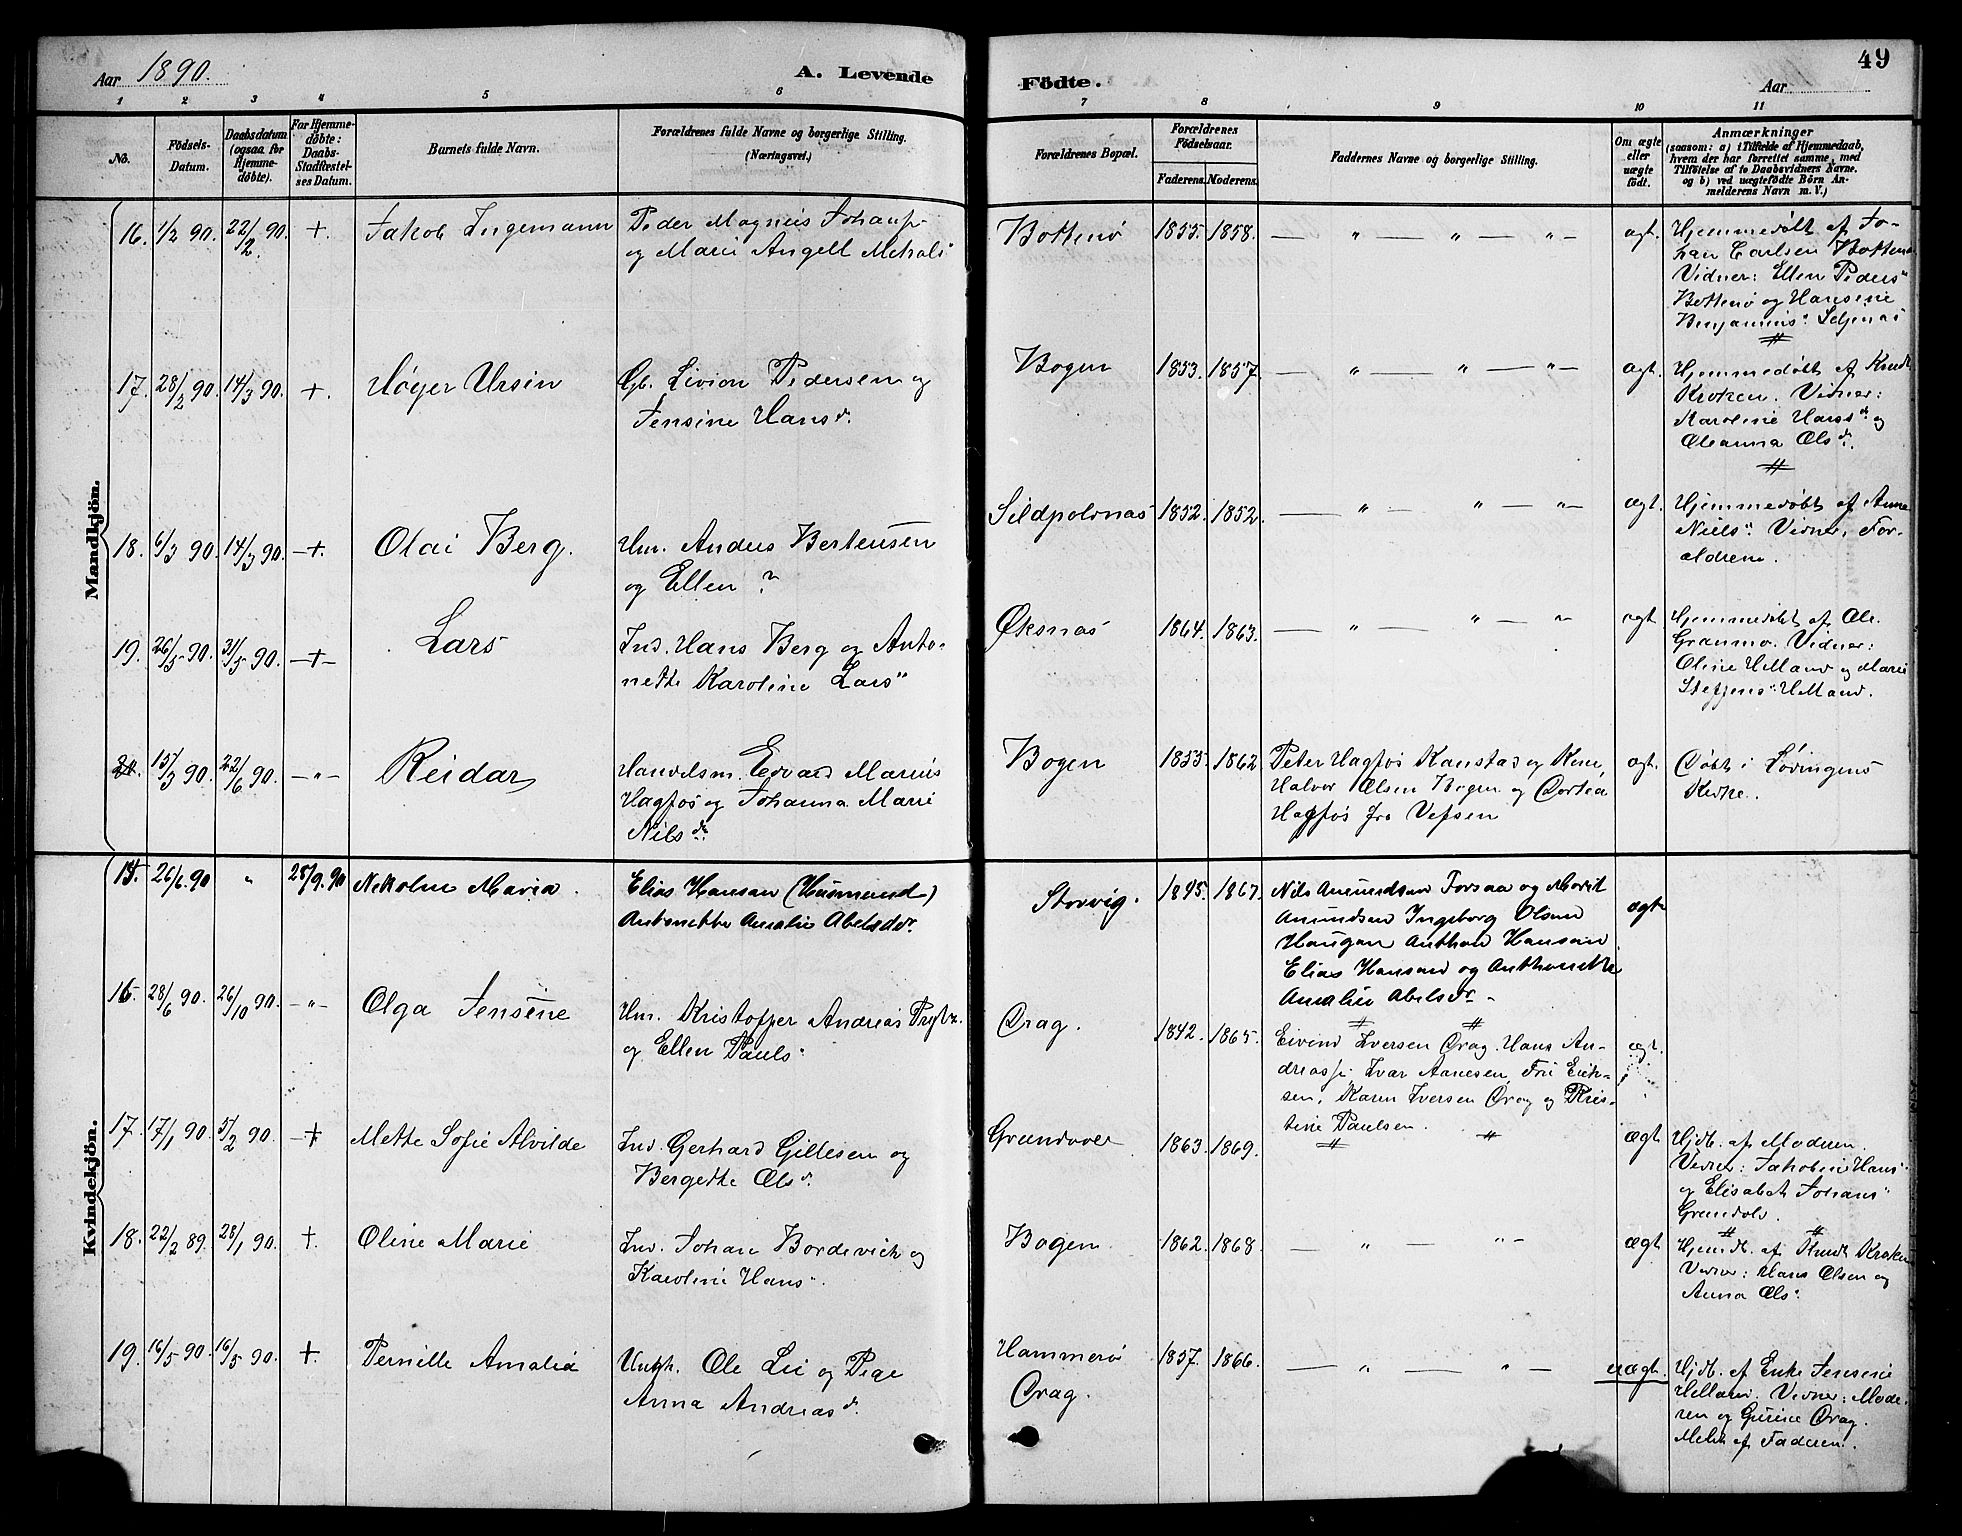 Aar 1890.
A. Levende
Födte.
Aar
49
1 2 3 4 5 6 7 8 9 10 11
No.
Födsels-
Datum.
Daabsdatum
(ogsaa for
Hjemme-
döbte).
For Hjemme-
döbte:
Daabs-
Stadfæstel-
ses Datum.
Barnets fulde Navn.
Forældrenes fulde Navne og borgerlige Stilling.
(Næringsvei.)
Forældrenes Bopæl.
Forældrenes
Födselsaar.
Faderens. Moderens.
Faddernes Navne og borgerlige Stilling.
Om ægte
eller
uægte
födt.
Anmærkninger
(saasom: a) i Tilfælde af Hjemmedaab,
hvem der har forrettet samme, med
Tilföielse af to Daabsvidners Navne,
og b) ved uægtefödte Börn An-
melderens Navn m. V.)
Mandkjön.
16. 1/2 90. 22/2. 90. +. Jakob Ingemann
Peder Magnus Johans
og Marie Angell
Bottenø 1855. 1858. — „ — „ — „ — ægt.
Hjemmedøbt af Jo-
han Carlsen Bottenø
Vidner: Ellen Peders"
Bottenø og Hansine
Benjamins"
17. 28/2 90. 14/3 90. +. Høyer Ursin
Gb. Livion Pedersen og
Jensine Hans d.
Bogen 1853. 1857. — „ — „ — „ — ægt.
Hjemmedøbt af Knudt
Kroken. Vidner:
Karoline Hans d. og
Oleanna Ols d.
18. 6/3 90. 14/3 90. —+. Olai Berg.
Hm. Anders Bertensen
og Ellen ?
Sildpolsnæs 1852. 1852. — „ — „ — „ — ægt.
Hjemmedøbt af Anne
Niels" Vidner, For-
ældrene.
19. 26/5 90. 31/5 90. —+— Lars
Ind. Hans Berg og Anto-
nette Karoline Lars"
Øksnæs 1864. 1863. — „ — „ — „ — ægt
Hjemmedøbt af Ole
Granmo. Vidner:
Oline Helland og Marie
Steffens" Helland.
20. 15/3 90. 22/6 90. —„— Reidar
Handelsm. Edvard Marius
Hagfos og Johanna Marie
Nils d.
Bogen 1855. 1862
Peter Hagfos Kanstad og Kone,
Halvor Olsen Bogen og Dortea
Hagfos fra Vefsen
ægt.
Døbt i Lødingens
Kirke.
Kvindekjön.
15. 26/6. 90 „ 28/9. 90 Nikoline Maria.
Elias Hansen (Husmand)
Antonette Amalie Abelsdr.
Storvig. 1845. 1867.
Nils Amundsen Forsaa og Morit
Amundsen Ingeborg Olsen
Haugen Anthon Hansen
Elias Hansen og Anthonette
Amalie Abelsdr. -
ægte
16. 28/6 90. 26/10 90. —„— Olga Jensine
Hm. Kristoffer Andreas Prytz.
og Ellen Pauls"
Drag. 1842. 1865.
Eivind Iversen Drag. Hans An-
dreass. Ivar Aanesen,
Karen Iversen Drag og Kris-
tine Paulsen.
ægt.
17. 17/1 90. 5/2 90. —+ Mette Sofie Alvilde
Ind. Gerhard Gillesen og
Bergette Ols d.
Grundvoll 1863. 1869. ægt.
Hjdb. af Moderen.
Vidner: Jakobine Hans"
og Elisabet Johans"
18. 22/2 89. 28/1 90. +. Oline Marie
Ind. Johan Bordevick og
Karoline Hans".
Bogen 1862. 1868. — „ — „ — ægt
Hjemdb. af Knudt Kroken
Vidner: Hans Olsen og
Anna Ols"
19. 16/5 90. 16/5 90. +. Pernille Amalia
Ungk. Ole Lie og Pige
Anna Andreas d.
Hammerø
Drag. 1857. 1866. — „ — „ — uægt.
Hjdb. af Enke Jensine
Helland. Vidner: Mode-
ren og Gurine Drag.
Meldt af Faderen.